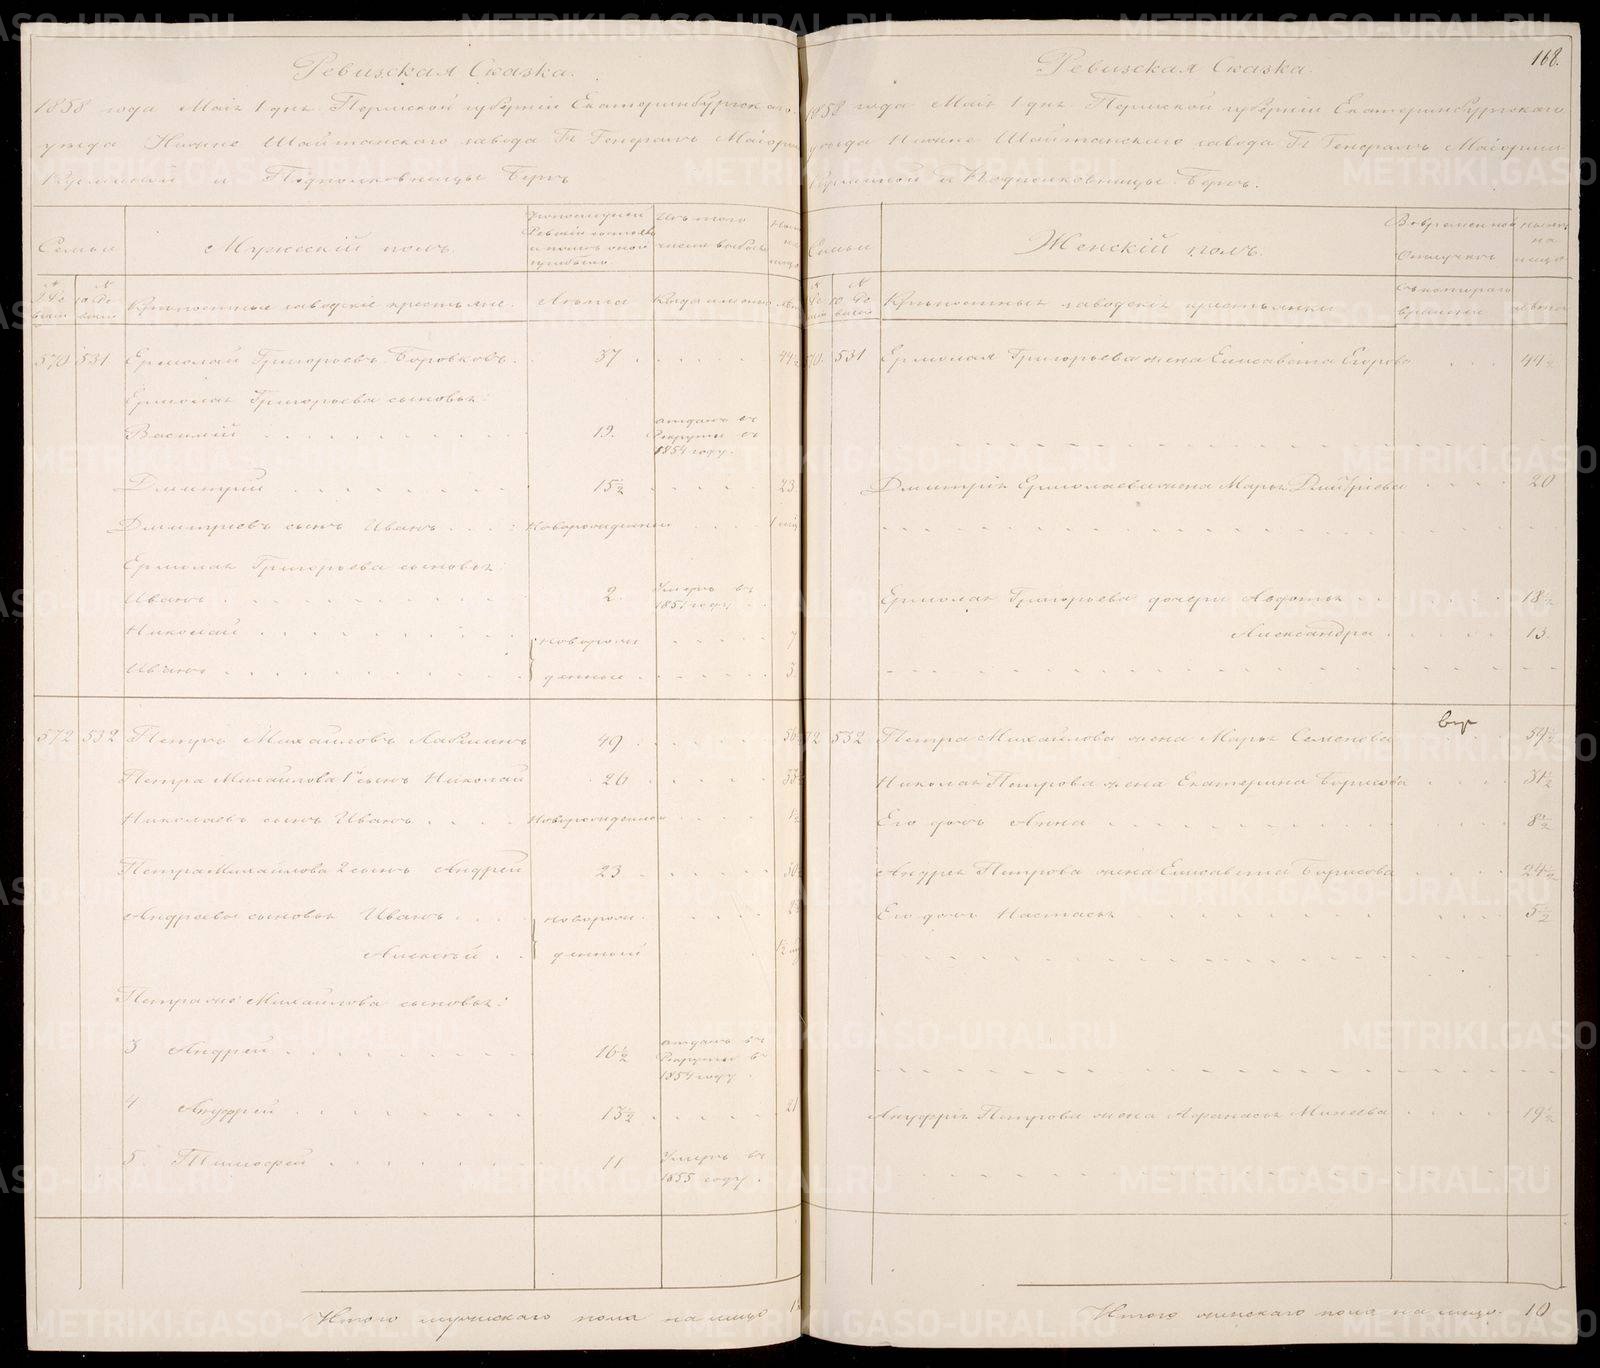 168.
Ревизская Сказка.
1858 года Маія 1 дня Пермской губерніи Екатеринбургскаго
уезда Нижне Шайтанскаго завода Гг Генералъ Маіорши
Кузьминой и Подполковницы Бергъ
Семьи
Мужескій полъ.
По последней Ревизіи состояло и после оной прибыло.
Изъ того числа выбыло
Ныне на лицо
№ 9 Ревизіи
№ 10 Ревизіи
Крепостные заводскіе крестьяне.
Лѣта
Когда именно
лѣта
570 531 Ермолай Григорьевъ Боровковъ. 37 44½
Ермолая Григорьева сыновья:
Василій 19. отданъ въ рекруты въ 1854 году.
Дмитрій 15½ 23.
Дмитріевъ сынъ Иванъ Новорожденный
Ермолая Григорьева сыновья:
Иванъ 2. Умеръ въ 1851 году
Николай новорож- 7
Иванъ денные 3.
572 532 Петръ Михайловъ 49
Петра Михайлова 1й сынъ Николай 26
Николаевъ сынъ Иванъ Новорожденный
Петра Михайлова 2 сынъ Андрей 23
Андреевы сыновья Иванъ новорож-
Алексѣй денный
Петра же Михайлова сыновья:
3 Андрей 16½ отданъ въ Рекруты въ 1854 году
4 Ануфрей 13½ 21
5 Тимофей 11 Умеръ въ 1855 году.
Итого мужскаго пола на лицо
Ревизская Сказка.
1858 года Маія 1 дня Пермской губерніи Екатеринбургскаго
уезда Нижне Шайтанскаго завода Гг Генералъ Маіорши
Кузьминой и Подполковницы Бергъ.
Семьи
Женскій полъ.
Во временной отлучке
Ныне на лицо
Крепостныя заводскія крестьянки
съ котораго времени
лѣта
531 Ермолая Григорьева жена Елисавета Егорова 44½
Дмитрія Ермолаева жена Марья Дмитріева 20
Ермолая Григорьева дочери Авдотья 18½
Александра 13.
532 Петра Михайлова жена Марья Семенова 59½
Николая Петрова жена Екатерина Борисова 31½
Его дочь Анна 8½
Андрея Петрова жена Елисавета Борисова 24½
Его дочь Настасья 5½
Ануфрія Петрова жена Афанасья Минеева 19½
Итого женскаго пола на лицо. 10
METRIKI.GASO-URAL.RU